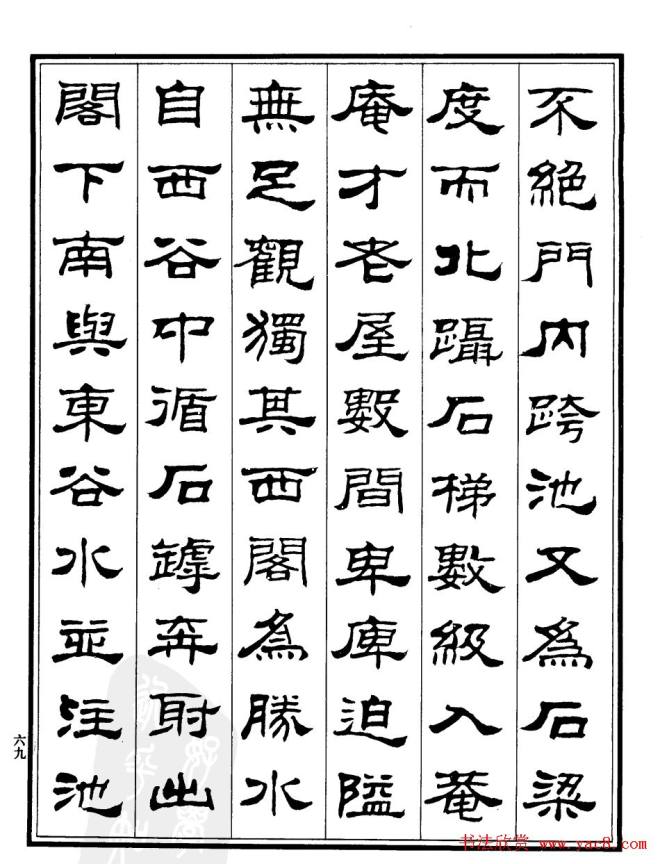 不絕門內跨池又為石梁
度而北躡石梯數級入菴
庵才老屋數間卑庳迫隘
無足觀獨其西閣為勝水
自西谷中循石罅奔射出
閣下南與東谷水並注池
六九
书法欣赏 www.yac8.com